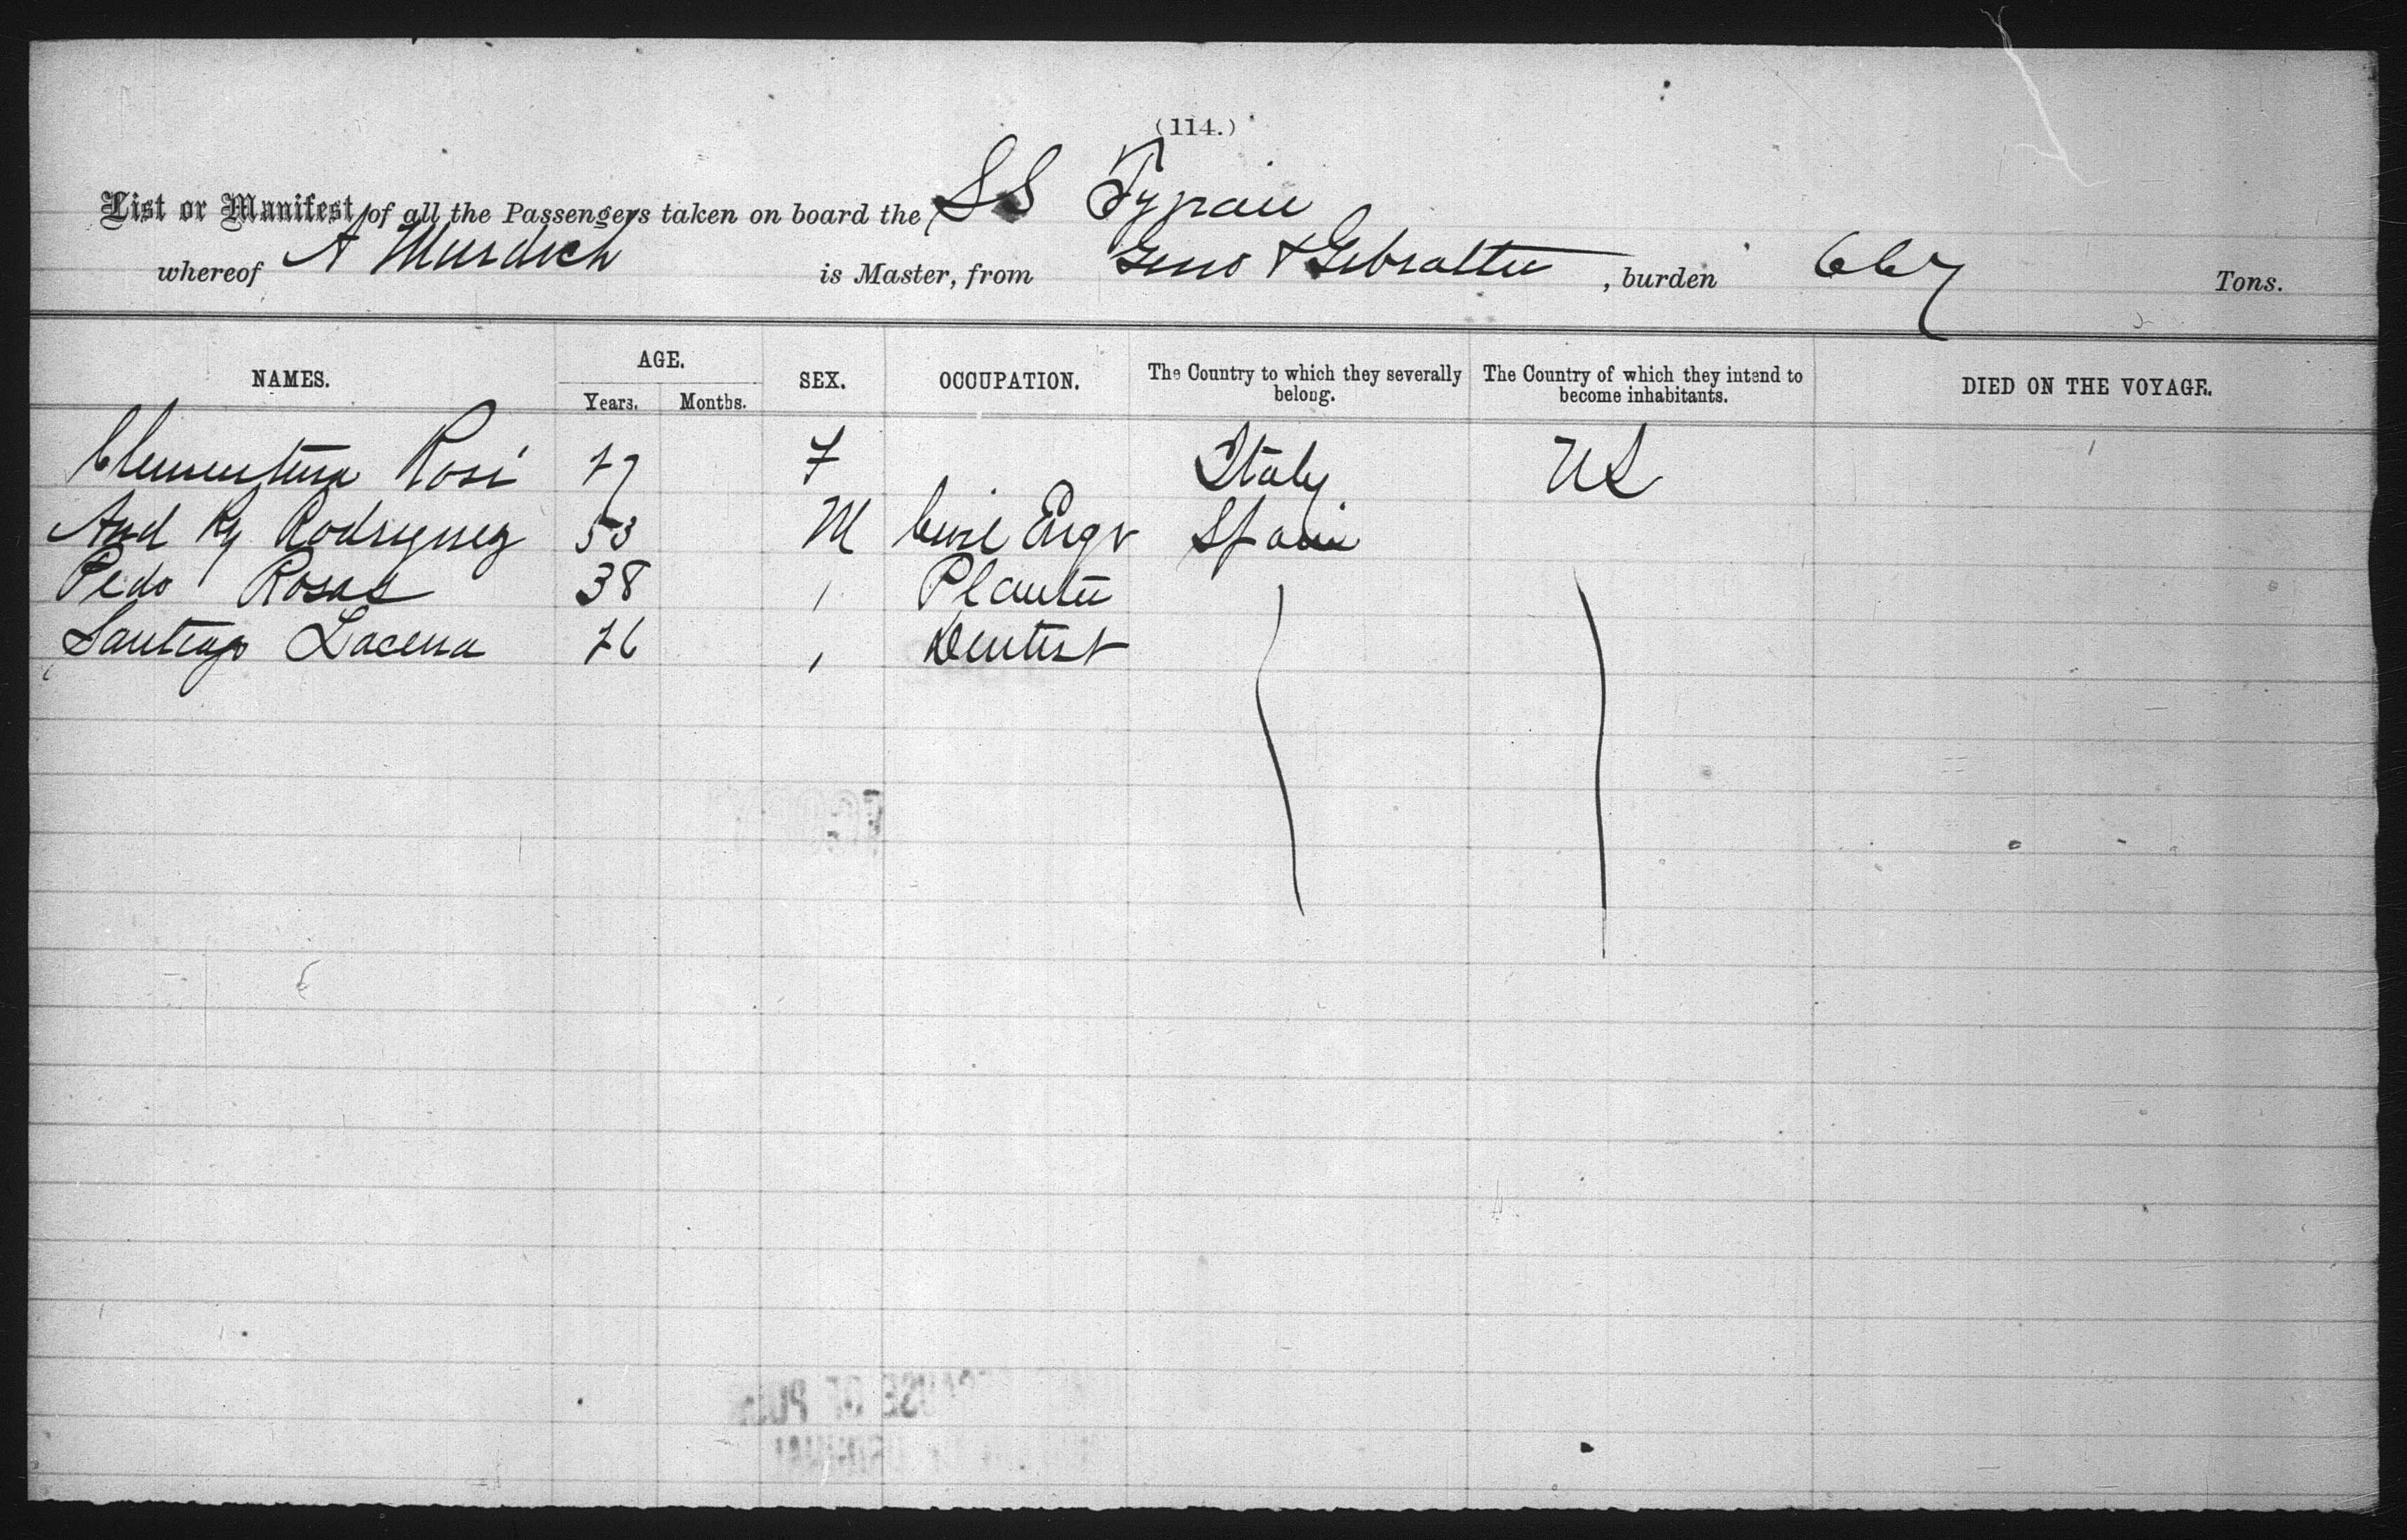 (114.)
List or Manifest of all the Passengers taken on board the SS Tyrian
whereof A Murdoch is Master, from Geno & Gibralter, burden 667 Tons.
NAMES. AGE. SEX. OCCUPATION. The Country to which they severally belong. The Country of which they intend to become inhabitants. DIED ON THE VOYAGE.
Years. Months.
Clementina Rosi 27 F Italy US
And Ry Rodriguez 53 M Civil Engr Spain
Pedo Rosas 38 Planter
Santiago Lacena 26 Dentist